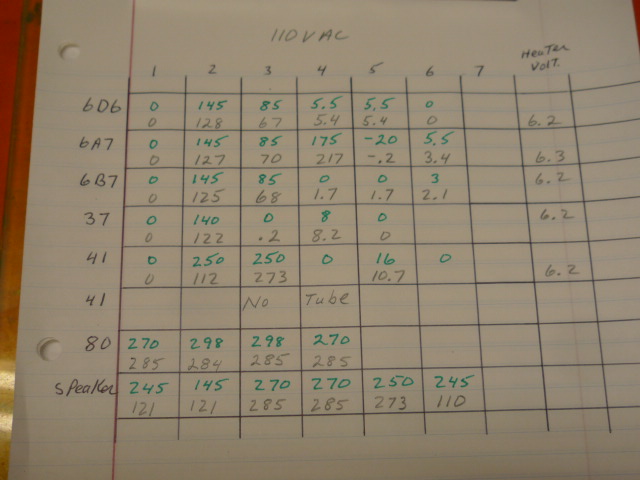 110 VAC
1 2 3 4 5 6 7 Heater Volt.
6D6 0 145 85 5.5 5.5 0
0 128 67 5.4 5.4 0 6.2
6A7 0 145 85 175 -20 5.5
0 127 70 217 -.2 3.4 6.3
6B7 0 145 85 0 0 3 6.2
0 125 68 1.7 1.7 2.1
37 0 140 0 8 0 6.2
0 122 .2 8.2 0
41 0 250 250 0 16 0
0 112 273 10.7 6.2
41 No Tube
80 270 298 298 270
285 284 285 285
Speaker 245 145 270 270 250 245
121 121 285 285 273 110